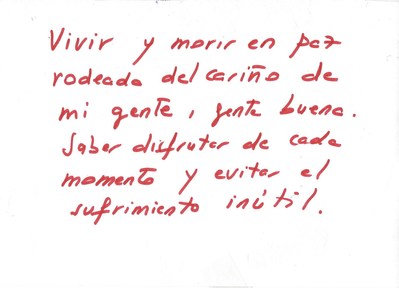 Vivir y morir en paz
rodeada del cariño de
mi gente, gente buena.
Saber disfrutar de cada
momento y evitar el
sufrimiento inútil.